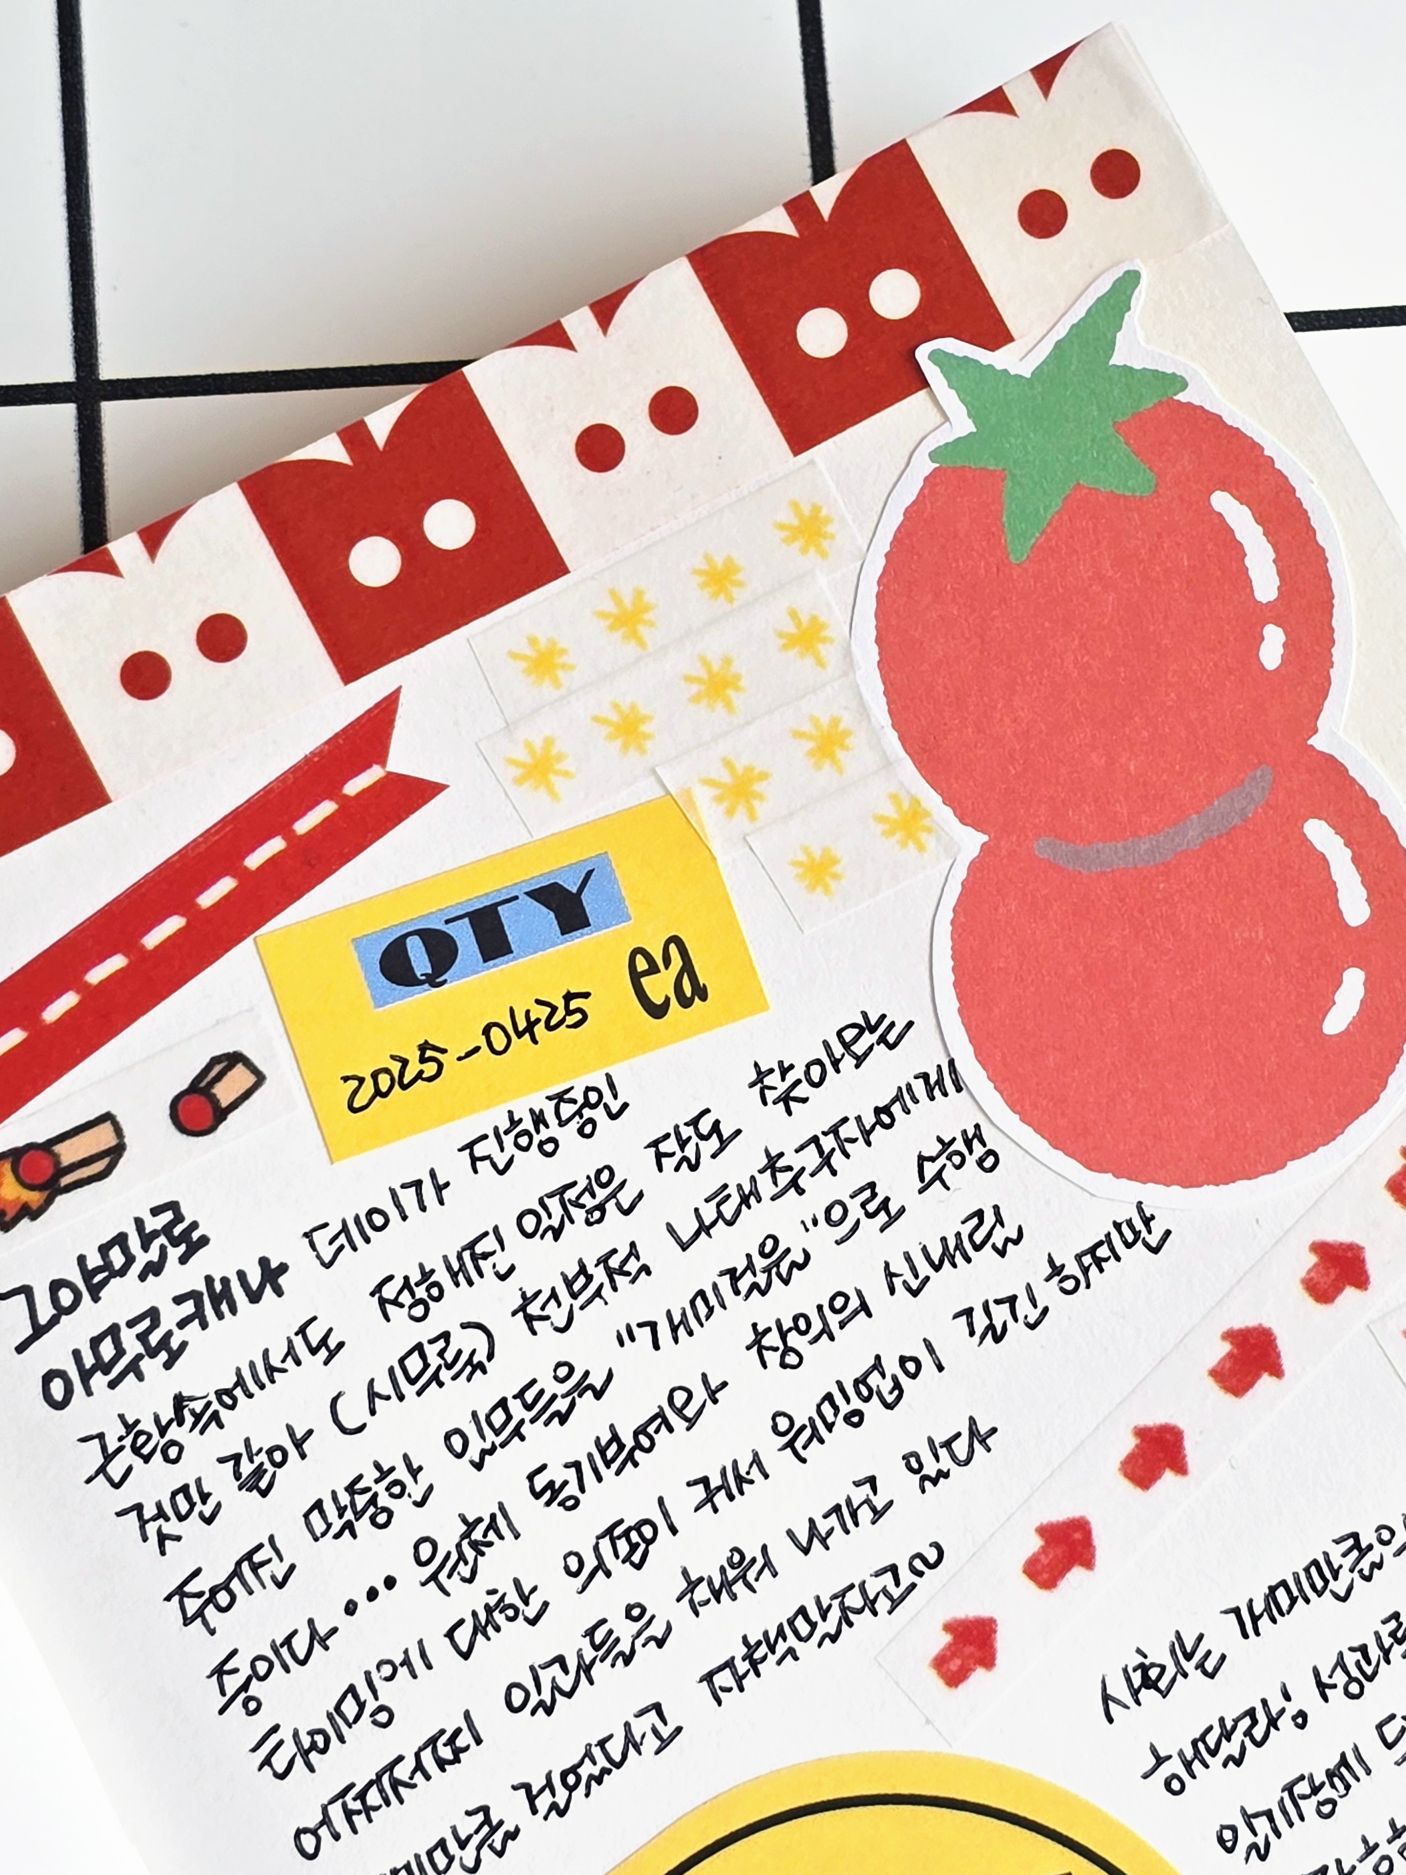 QTY
ea
2025-0425
그야말로
아무로캐나 데이가 진행중인
근황속에서도 정해진 일정은 잘도 찾아오는
것만 같아 (시무룩) 천부적 나태추구자에게
주어진 막중한 일무들을 "개미걸음"으로 수행
중이다... 원체 동기부여와 창의의 신내림
타이밍에 대한 의존이 커서 워밍업이 길긴 하지만
어찌저찌 일과들을 채워 나가고 있다
개미만큼 걸었다고 자책말자고~
사회는 개미만큼의
해달라! 성과로
일기장에